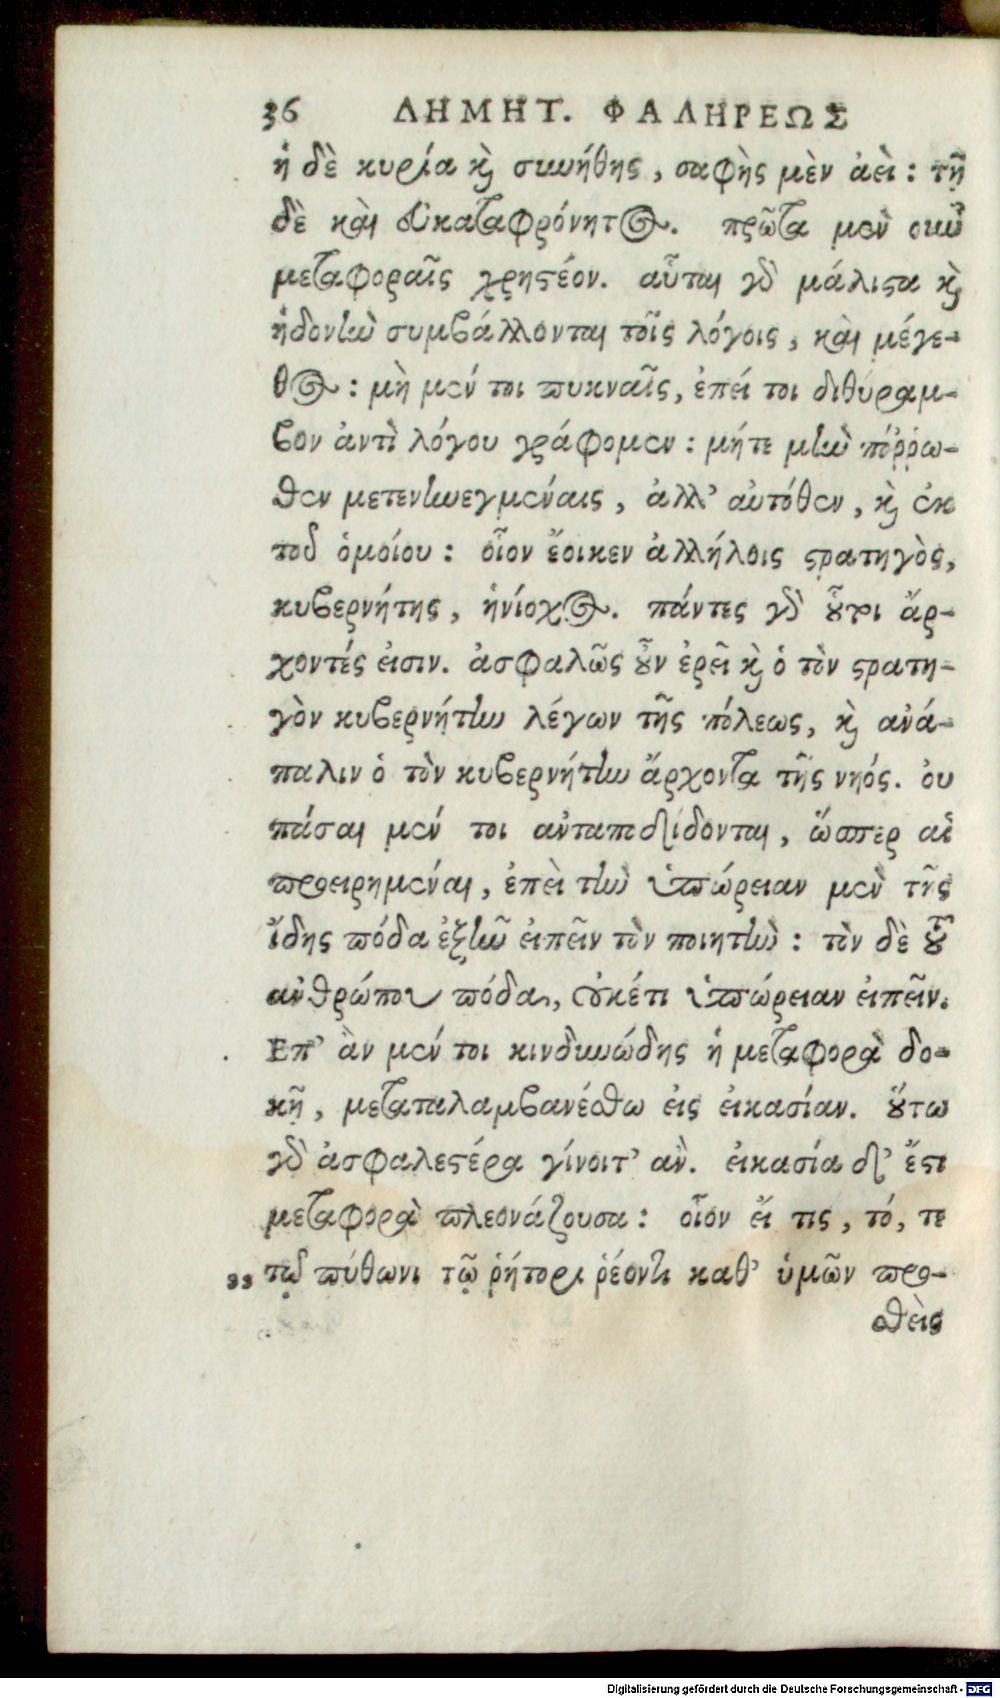 36 ΔΗΜΗΤ. ΦΑΛΗΡΕΩΣ
ἡ δὲ κυρία καὶ συνήθης, σαφὴς μὲν ἀεὶ: τῇ
δὲ καὶ εὐκαταφρόνητος. πρῶτα μὲν οὖν
μεταφοραῖς χρηστέον. αὗται γὰρ μάλιστα καὶ
ἡδονὴν συμβάλλονται τοῖς λόγοις, καὶ μέγε-
θος: μὴ μέν τοι πυκναῖς, ἐπεί τοι διθύραμ-
βον ἀντὶ λόγου γράφομεν: μήτε μὴν πόῤῥω-
θεν μετενηνεγμέναις, ἀλλ' αὐτόθεν, καὶ ἐκ
τοῦ ὁμοίου: οἷον ἔοικεν ἀλλήλοις στρατηγὸς,
κυβερνήτης, ἡνίοχος. πάντες γὰρ οὗτοι ἄρ-
χοντές εἰσιν. ἀσφαλῶς οὖν ἐρεῖ καὶ ὁ τὸν στρατη-
γὸν κυβερνήτην λέγων τῆς πόλεως, καὶ ἀνά-
παλιν ὁ τὸν κυβερνήτην ἄρχοντα τῆς νηός. οὐ
πάσαι μέν τοι ἀνταποδίδονται, ὥσπερ αἱ
προειρημέναι, ἐπεὶ τὴν ὑπώρειαν μὲν τῆς
ἴδης πόδα ἐξῆν εἰπεῖν τὸν ποιητὴν: τὸν δὲ τοῦ
ἀνθρώπου πόδα, οὐκέτι ὑπώρειαν εἰπεῖν.
Επ' ὰν μέν τοι κινδυνώδης ἡ μεταφορὰ δο-
κῇ, μεταπαλαμβανέσθω εἰς εἰκασίαν. οὕτω
γὰρ ἀσφαλεστέρα γίνοιτ' ἄν. εἰκασία δ' ἔστι
μεταφορὰ πλεονάζουσα: οἷον εἴ τις, τό, τε
" τῷ πύθωνι τῷ ῥήτορι ῥέοντι καθ' ὑμῶν προ-
σθεὶς
Digitalisierung gefördert durch die Deutsche Forschungsgemeinschaft - DFG